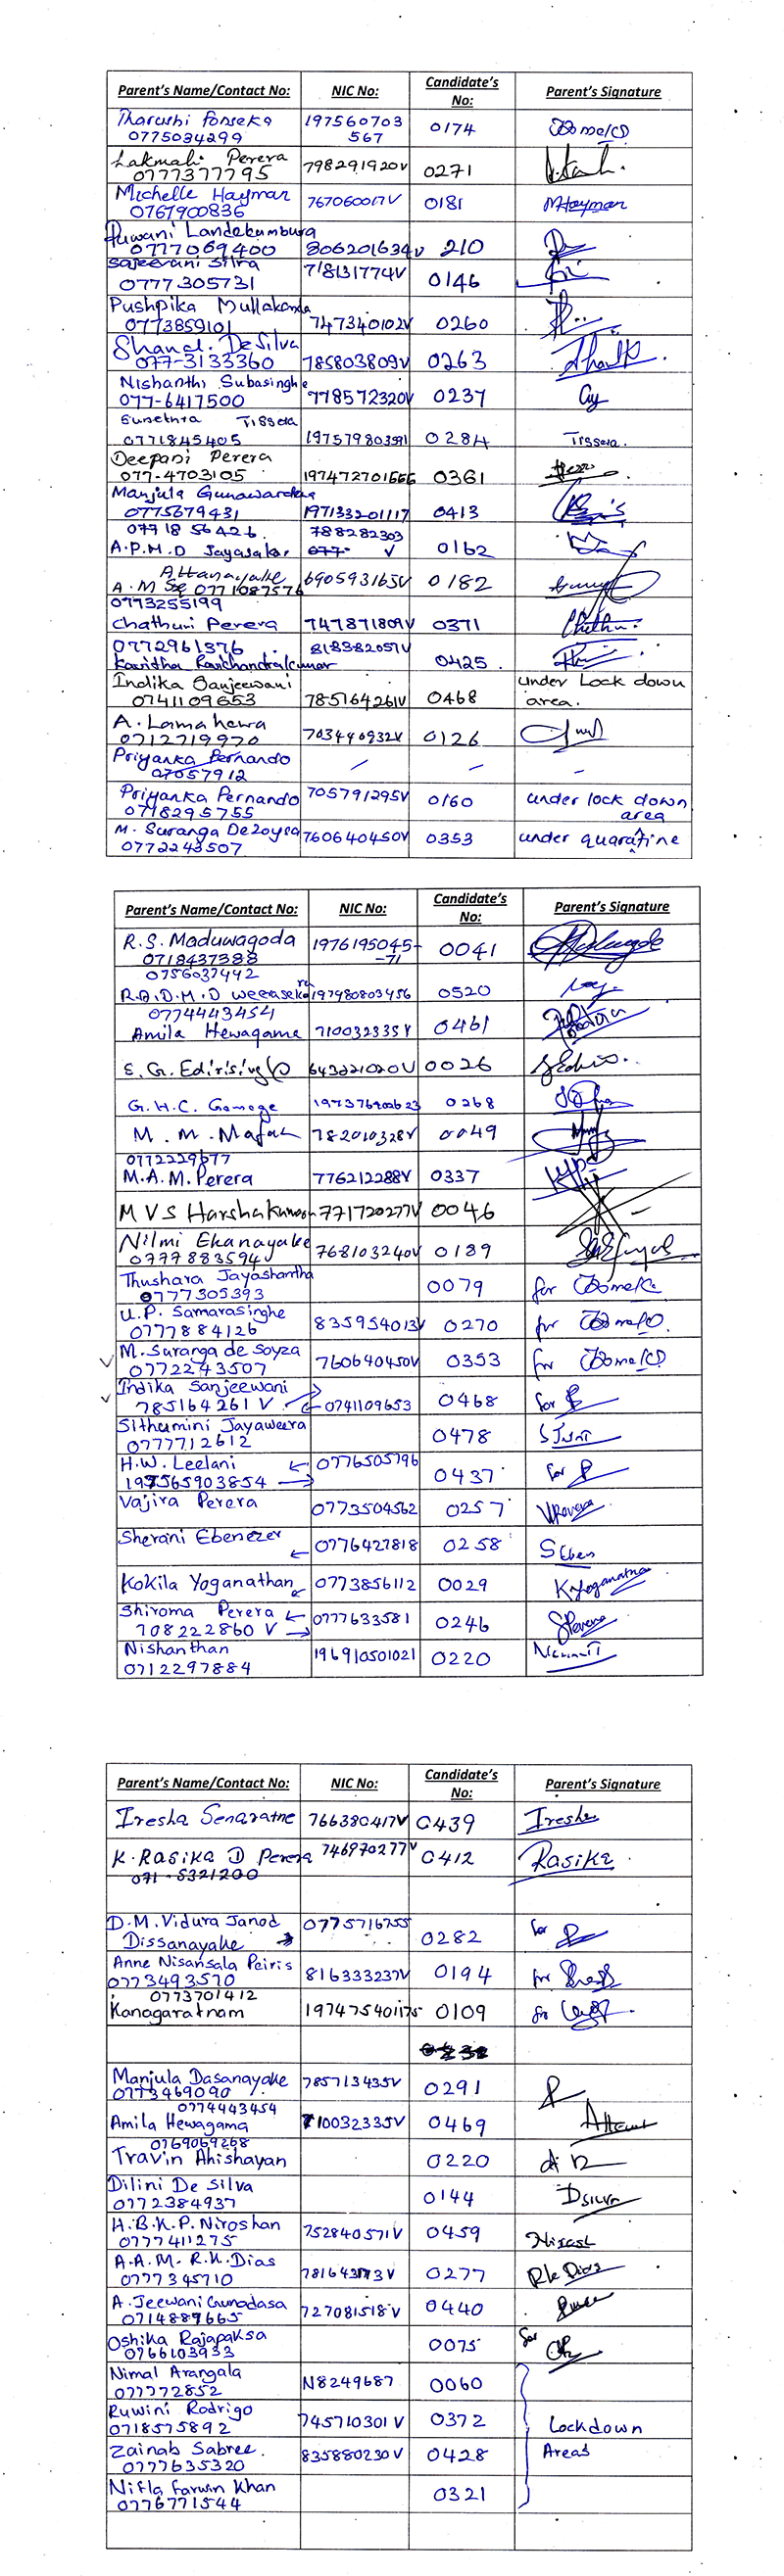 Parent's Name/Contact No: NIC No: Candidate's No: Parent's Signature
Tharushi Fonseka 197560703
0775034299 567 0174
Lakmali Perera 798291920V 0271
0777377795
Michelle Hayman 767060017V 0181 MHayman
0767900836
Ruwani Landekumbura
0777069400 806201634V 210
Sajeevani Silva 718131774V 0146
0777305731
Pushpika Mullakanda
0773859101 747340102V 0260
Shand. De Silva
077-3133360 785803809V 0263
Nishanthi Subasinghe
077-6417500 778572320V 0237
Sunethra Tissera
0771845405 197579803591 0284 Tissera.
Deepani Perera
077-4703105 197472701666 0361
Manjula Gunawardena
0775679431 197133201117 0413
0771856426 788282303
A.P.M.D Jayasekar V 0162
Attanayake
A.M 0771087576 690593165V 0182
0773255199
Chathuni Perera 747871809V 0371 Chathu.
0772961376 818382057V
Kavitha Ravichandrakumar 0425
Indika Sanjeewani under Lock down
0741109653 785164261V 0468 area.
A. Lamahewa
0712719970 703440932V 0126
Priyanka Fernando
07057912
Priyanka Fernando 705791295V 0160 under lock down
0718295755 area
M. Suranga De Zoysa 760640450V 0353 under quarantine
0772243507
Parent's Name/Contact No: NIC No: Candidate's No: Parent's Signature
R.S. Maduwagoda 1976195045-
0718437388 -71 0041
0756037442
R.A.D.M.D Weerasekara 197980803456 0520
0774443454
Amila Hewagama 710032335V 0461
E.G. Edirisinghe 643221020V 0026
G.H.C. Gamage 0268
M.M. Mafaz 782010328V 0049
0772229677
M.A.M. Perera 776212288V 0337
MVS Harshakumara 771720277V 0046
Nilmi Ekanayake
0777883594 768103240V 0189
Thushara Jayashantha 0079 for
0777305393
U.P. Samarasinghe
0777884126 835954013V 0270 for
M. Suranga de Soyza
0772243507 760640450V 0353 for
Indika Sanjeewani
785164261V 0741109653 0468 for
Sithumini Jayaweera
0777712612 0478
H.W. Leelani 0776505796
197565903854 0437 for
Vajira Perera 0773504562 0257 VPerera
Sherani Ebenezer 0776427818 0258 SEben
Kokila Yoganathan 0773856112 0029 KYoganathan
Shiroma Perera 0777633581 0246 SPerera
708222860 V
Nishanthan 196910501021 0220
0712297884
Parent's Name/Contact No: NIC No: Candidate's No: Parent's Signature
Iresha Senaratne 766380417V 0439 Iresha
K. Rasika D Perera 746970277V 0412 Rasika
071-5321200
D.M. Vidura Janod 0775716755 for
Dissanayake 0282
Anne Nisansala Peiris
0773493570 816333237V 0194 for
0773701412
Kanagaratnam 197475401175 0109 for
Manjula Dasanayake 785713435V 0291
0773469090
0774443454
Amila Hewagama 710032335V 0469
0769069268
Travin Ahishayan 0220
Dilini De Silva
0772384937 0144 Dsilva
H.B.K.P. Niroshan
0777411275 752840571V 0459
A.A.M.R.K. Dias
0777345710 0277 Rk Dias
A. Jeewani Gunadasa
0714889665 727081518V 0440
Oshika Rajapaksa 0075 for
0766103933
Nimal Arangala N8249687 0060
077772852
Ruwini Rodrigo
0718575892 745710301 V 0372 Lockdown
Zainab Sabree.
0777635320 835880230V 0428 Areas
Nifla Farwin Khan
0776771544 0321